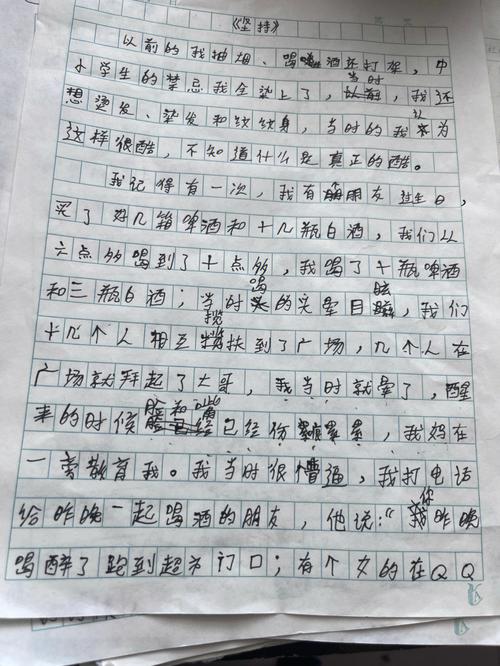 《坚持》
以前的我抽烟、喝酒还打架，中
小学生的禁忌我全染上了，当时我还
想烫发、染发和纹纹身，当时的我认为
这样很酷，不知道什么是真正的酷。
我记得有一次，我有个朋友过生日，
买了好几箱啤酒和十几瓶白酒，我们从
六点多喝到了十点多，我喝了十瓶啤酒
和三瓶白酒；当时喝的头晕目眩，我们
十几个人相互搀扶到了广场，几个人在
广场就拜起了大哥，我当时就晕了，醒
来的时候脸和嘴已经伤痕累累，我妈在
一旁教育我。我当时很懵逼，我打电话
给昨晚一起喝酒的朋友，他说：“你昨晚
喝醉了跑到超市门口；有个女的在QQ